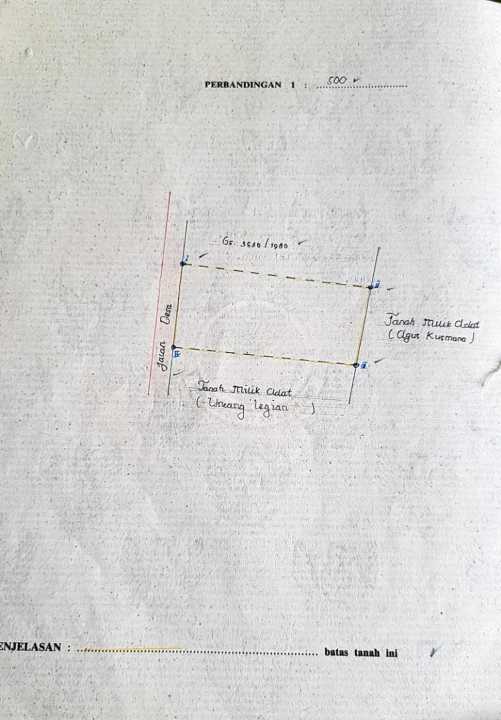 PERBANDINGAN 1 : 500
Gs. 3586 / 1980
I
II
Tanah Milik Adat
( Agus Kusmana )
Jalan Desa
IV
III
Tanah Milik Adat
( Uneang Legian )
ENJELASAN : ........................ batas tanah ini